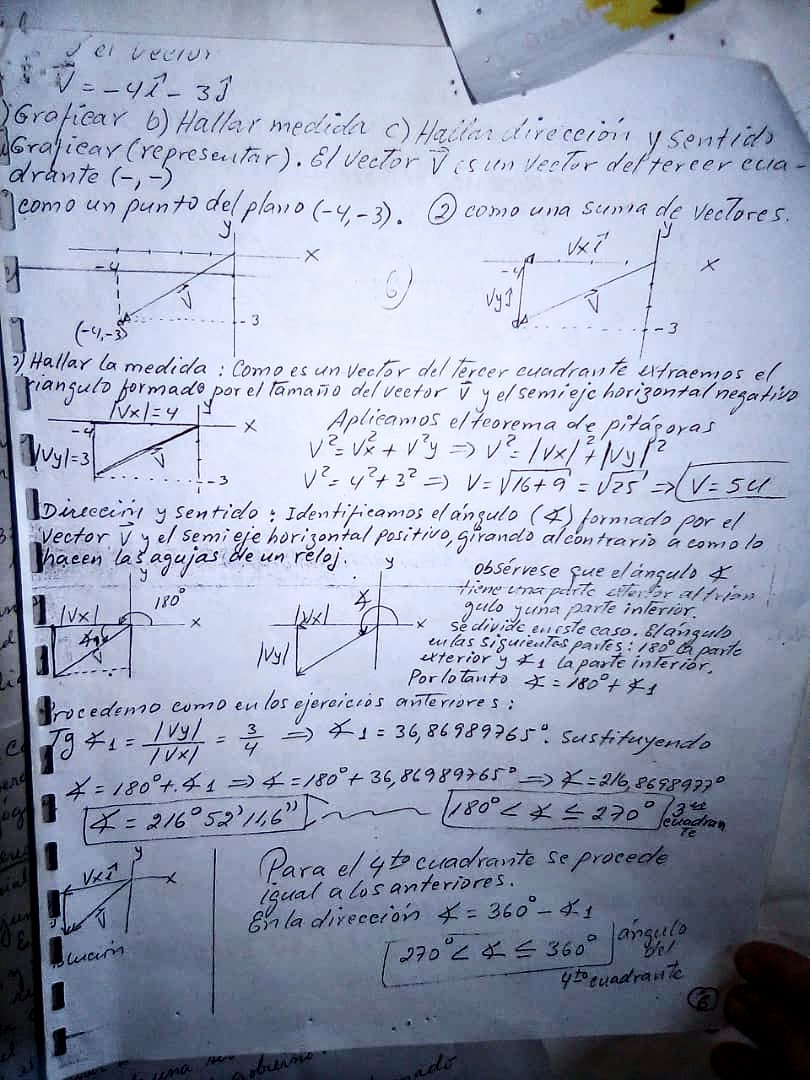 el vector
V = -4î - 3ĵ
)Graficar b) Hallar medida c) Hallar dirección y sentido
Graficar (representar). El vector V es un vector del tercer cua-
drante (-, -)
como un punto del plano (-4,-3). ② como una suma de vectores.
y
x
-4
V
(-4,-3)
-3
6)
y
Vxî
x
-4
Vyĵ
V
-3
) Hallar la medida : Como es un vector del tercer cuadrante extraemos el
riangulo formado por el tamaño del vector V y el semieje horizontal negativo
|Vx|=4
y
x
-4
|Vy|=3
V
-3
Aplicamos el teorema de pitágoras
V²=Vx²+V²y => V²=|Vx|²+|Vy|²
V²=4²+3² => V=√16+9 = √25 => V=5u
Dirección y sentido : Identificamos el ángulo (∡) formado por el
vector V y el semieje horizontal positivo, girando al contrario a como lo
hacen las agujas de un reloj.
y
180°
|Vx|
x
∡1
V
y
∡
|Vx|
x
|Vy|
obsérvese que el ángulo ∡
tiene una parte exterior al trian
gulo y una parte interior.
Se divide en este caso. El ángulo
en las siguientes partes: 180° la parte
exterior y ∡1 la parte interior.
Por lo tanto ∡ = 180° + ∡1
rocedemo como en los ejercicios anteriores :
Tg ∡1 = |Vy|/|Vx| = 3/4 => ∡1 = 36,86989765°. Sustituyendo
∡=180°+.∡1 => ∡=180°+36,86989765° => ∡=216,8698977°
∡ = 216°52'11,6"
180° < ∡ ≤ 270°
3er
cuadran
te
y
Vxî
x
V
olución
Para el 4to cuadrante se procede
igual a los anteriores.
En la dirección ∡ = 360° - ∡1
270° < ∡ ≤ 360°
ángulo
del
4to cuadrante
6
gobierno.